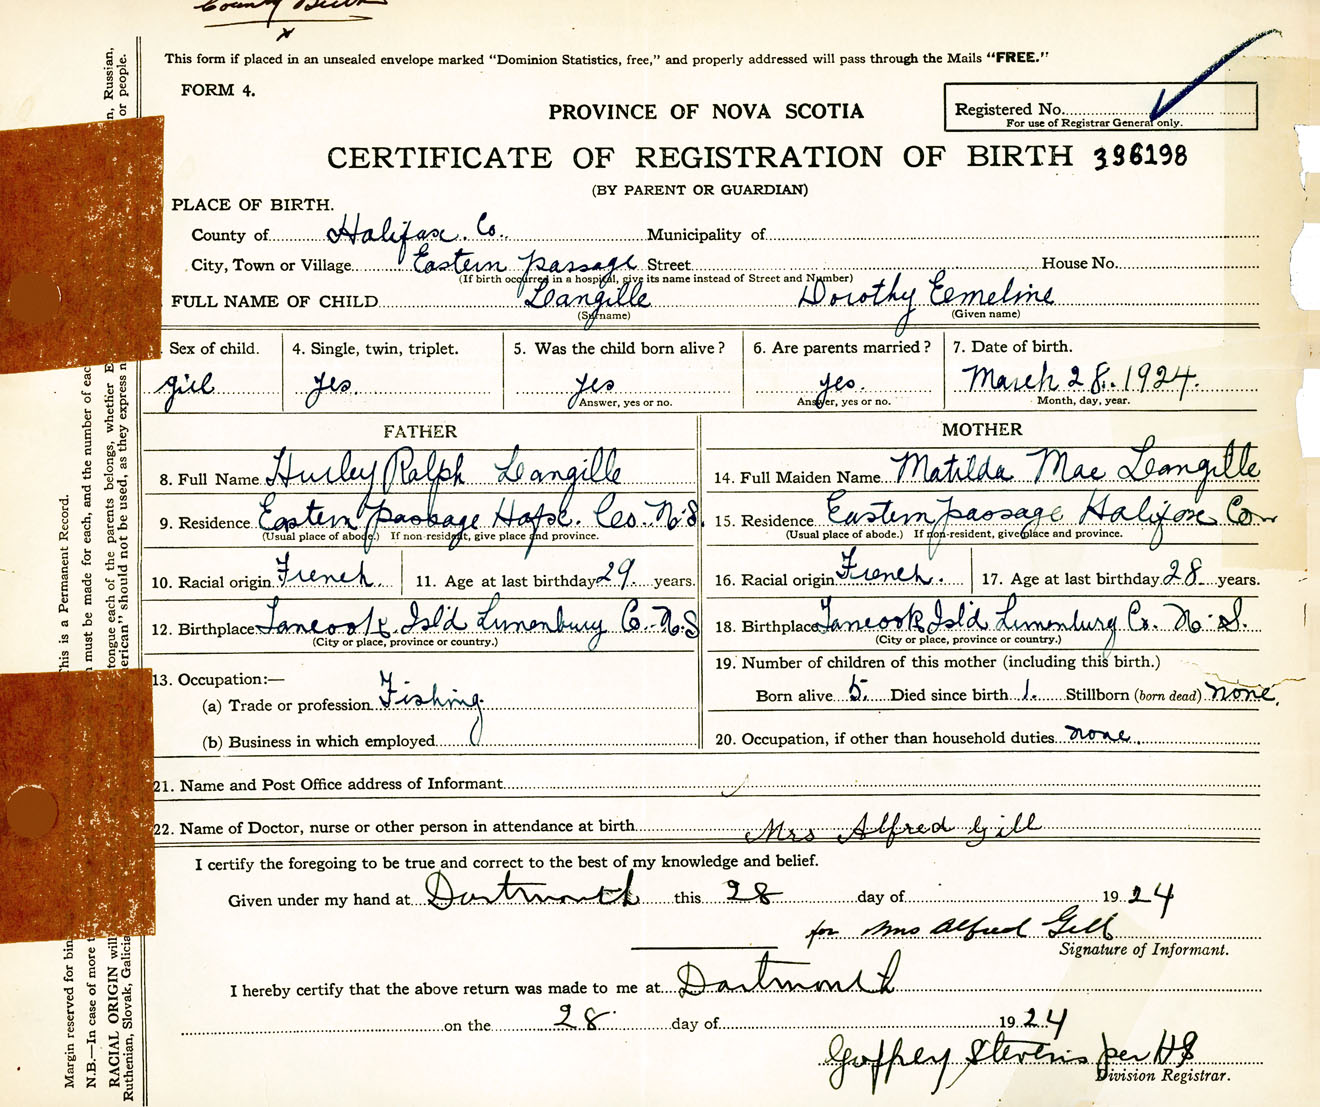 County Birth
x
This form if placed in an unsealed envelope marked "Dominion Statistics, free," and properly addressed will pass through the Mails "FREE."
FORM 4.
PROVINCE OF NOVA SCOTIA
Registered No.
For use of Registrar General only.
CERTIFICATE OF REGISTRATION OF BIRTH 396198
(BY PARENT OR GUARDIAN)
PLACE OF BIRTH.
County of Halifax. Co. Municipality of
City, Town or Village Eastern passage Street House No.
(If birth occurred in a hospital, give its name instead of Street and Number)
FULL NAME OF CHILD Langille Dorothy Emeline
(Surname) (Given name)
Sex of child. 4. Single, twin, triplet. 5. Was the child born alive? 6. Are parents married? 7. Date of birth.
girl yes. yes yes. March 28. 1924.
Answer, yes or no. Answer, yes or no. Month, day, year.
FATHER MOTHER
8. Full Name Hurley Ralph Langille 14. Full Maiden Name Matilda Mae Langille
9. Residence Eastern passage Hafx. Co. N.S. 15. Residence Eastern passage Halifax Co
(Usual place of abode.) If non-resident, give place and province. (Usual place of abode.) If non-resident, give place and province.
10. Racial origin French. 11. Age at last birthday 29. years. 16. Racial origin French. 17. Age at last birthday 28 years.
12. Birthplace Tancook Isl'd Lunenburg Co. N.S 18. Birthplace Tancook Isl'd Lunenburg Co. N.S.
(City or place, province or country.) (City or place, province or country.)
13. Occupation:— 19. Number of children of this mother (including this birth.)
(a) Trade or profession Fishing Born alive 5. Died since birth 1. Stillborn (born dead) none.
(b) Business in which employed 20. Occupation, if other than household duties none.
21. Name and Post Office address of Informant
22. Name of Doctor, nurse or other person in attendance at birth Mrs Alfred Gill
I certify the foregoing to be true and correct to the best of my knowledge and belief.
Given under my hand at Dartmouth this 28 day of 1924
for Mrs Alfred Gill
Signature of Informant.
I hereby certify that the above return was made to me at Dartmouth
on the 28 day of 1924
Goffrey Stevens per HS
Division Registrar.
Margin reserved for bin
his is a Permanent Record.
N.B.—In case of more t
must be made for each, and the number of eac
RACIAL ORIGIN will
tongue each of the parents belongs, whether E
n, Russian,
Ruthenian, Slovak, Galicia
erican" should not be used, as they express n
or people.